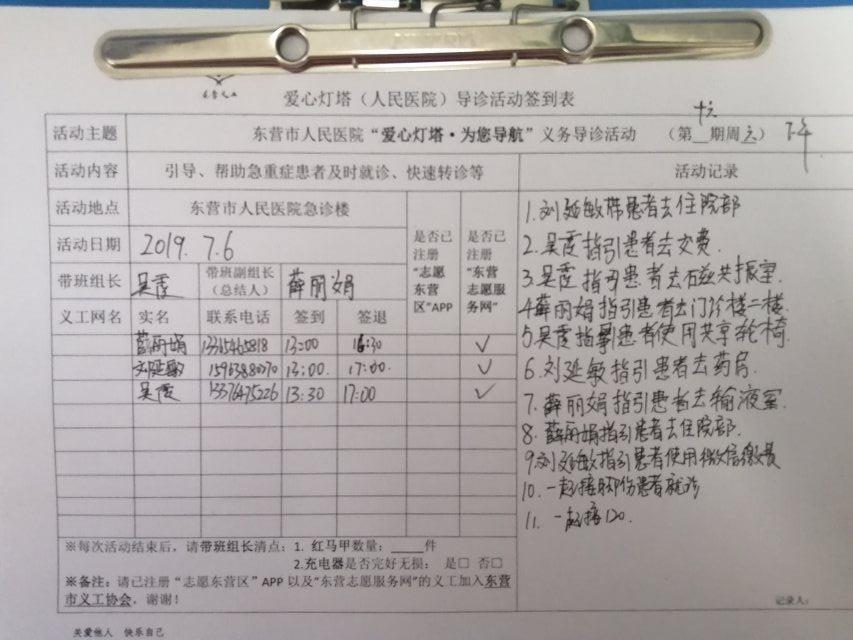 爱心灯塔（人民医院）导诊活动签到表
活动主题 东营市人民医院“爱心灯塔·为您导航”义务导诊活动 （第__期周六） 下午
活动内容 引导、帮助急重症患者及时就诊、快速转诊等 活动记录
活动地点 东营市人民医院急诊楼
是否已注册“志愿东营区”APP
是否已注册“东营志愿服务网”
活动日期 2019.7.6
带班组长 吴霞 带班副组长（总结人） 薛丽娟
义工网名 实名 联系电话 签到 签退
薛丽娟 13:00 16:30 ✓
刘延敏 15963880070 13:00. 17:00. ✓
吴霞 13376475226 13:30 17:00 ✓
1.刘延敏带患者去住院部
2.吴霞指引患者去交费.
3.吴霞指引患者去石磁共振室.
4薛丽娟指引患者去门诊楼二楼.
5吴霞指引患者使用共享轮椅.
6.刘延敏指引患者去药房.
7.薛丽娟指引患者去输液室.
8.薛丽娟指引患者去住院部.
9刘延敏指引患者使用微信缴费
10.一起接脚伤患者就诊
11.一起接120.
※每次活动结束后，请带班组长清点：1. 红马甲数量：____件
2.充电器是否完好无损： 是□ 否□
※备注：请已注册“志愿东营区”APP以及“东营志愿服务网”的义工加入东营
市义工协会，谢谢！
记录人：
关爱他人 快乐自己